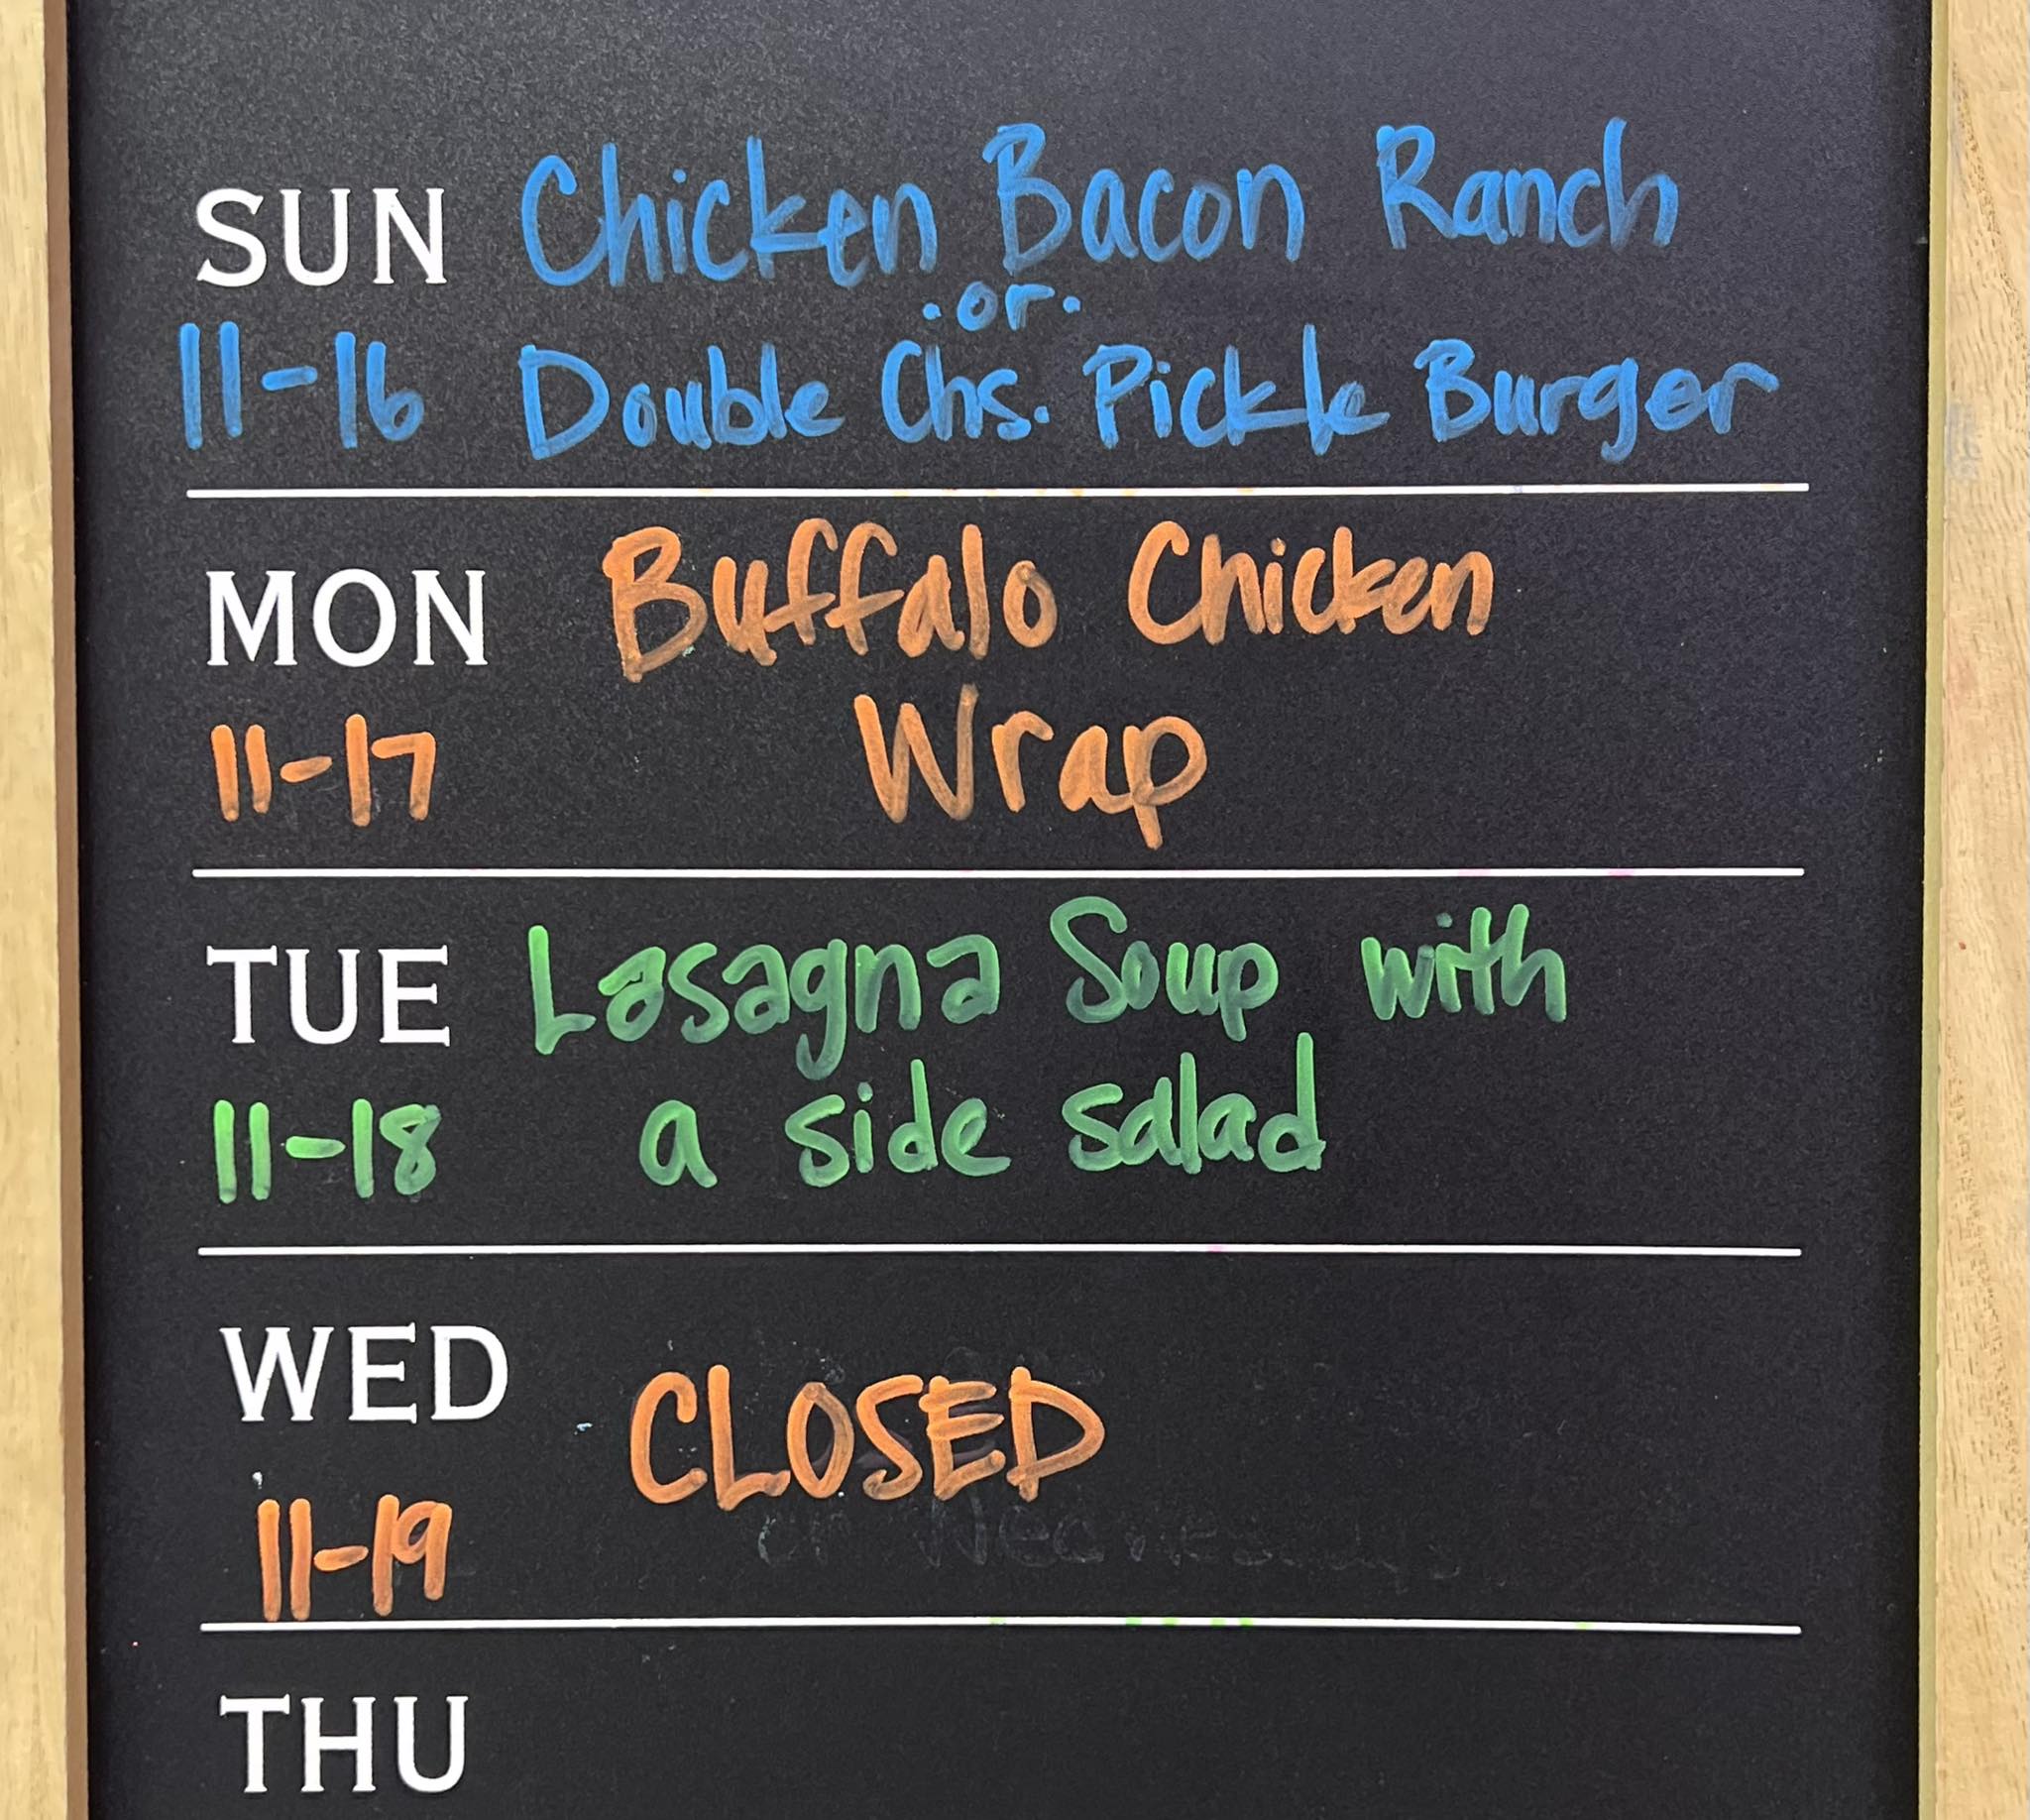 SUN Chicken Bacon Ranch
.or.
11-16 Double Chs. Pickle Burger
MON Buffalo Chicken
11-17 Wrap
TUE Lasagna Soup with
11-18 a side salad
WED CLOSED
11-19
THU